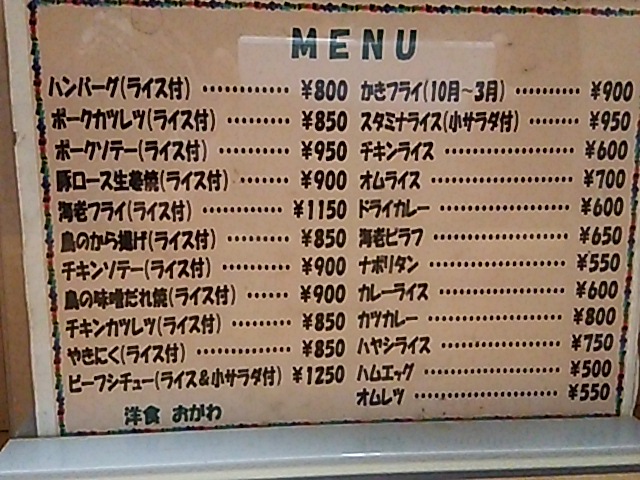 MENU
ハンバーグ(ライス付) ………… ¥800
ポークカツレツ(ライス付) ……… ¥850
ポークソテー(ライス付) ……… ¥950
豚ロース生姜焼(ライス付) …… ¥900
海老フライ(ライス付) ……… ¥1150
鳥のから揚げ(ライス付) ……… ¥850
チキンソテー(ライス付) ……… ¥900
鳥の味噌だれ焼(ライス付) …… ¥900
チキンカツレツ(ライス付) ……… ¥850
やきにく(ライス付) ………… ¥850
ビーフシチュー(ライス&小サラダ付) ¥1250
洋食 おがわ
かきフライ(10月~3月) ……… ¥900
スタミナライス(小サラダ付) …… ¥950
チキンライス …………… ¥600
オムライス …………… ¥700
ドライカレー …………… ¥600
海老ピラフ …………… ¥650
ナポリタン …………… ¥550
カレーライス …………… ¥600
カツカレー …………… ¥800
ハヤシライス …………… ¥750
ハムエッグ …………… ¥500
オムレツ …………… ¥550